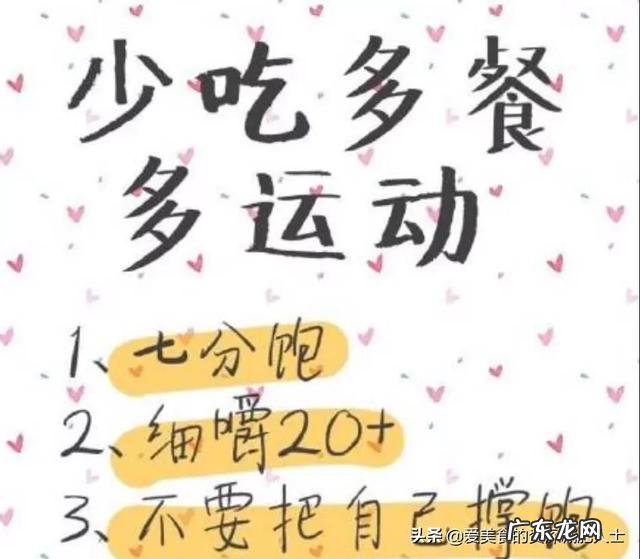 少吃多餐
多运动
1、七分饱
2、细嚼20+
3、不要把自己撑饱
头条@爱美食的
士
广东龙网